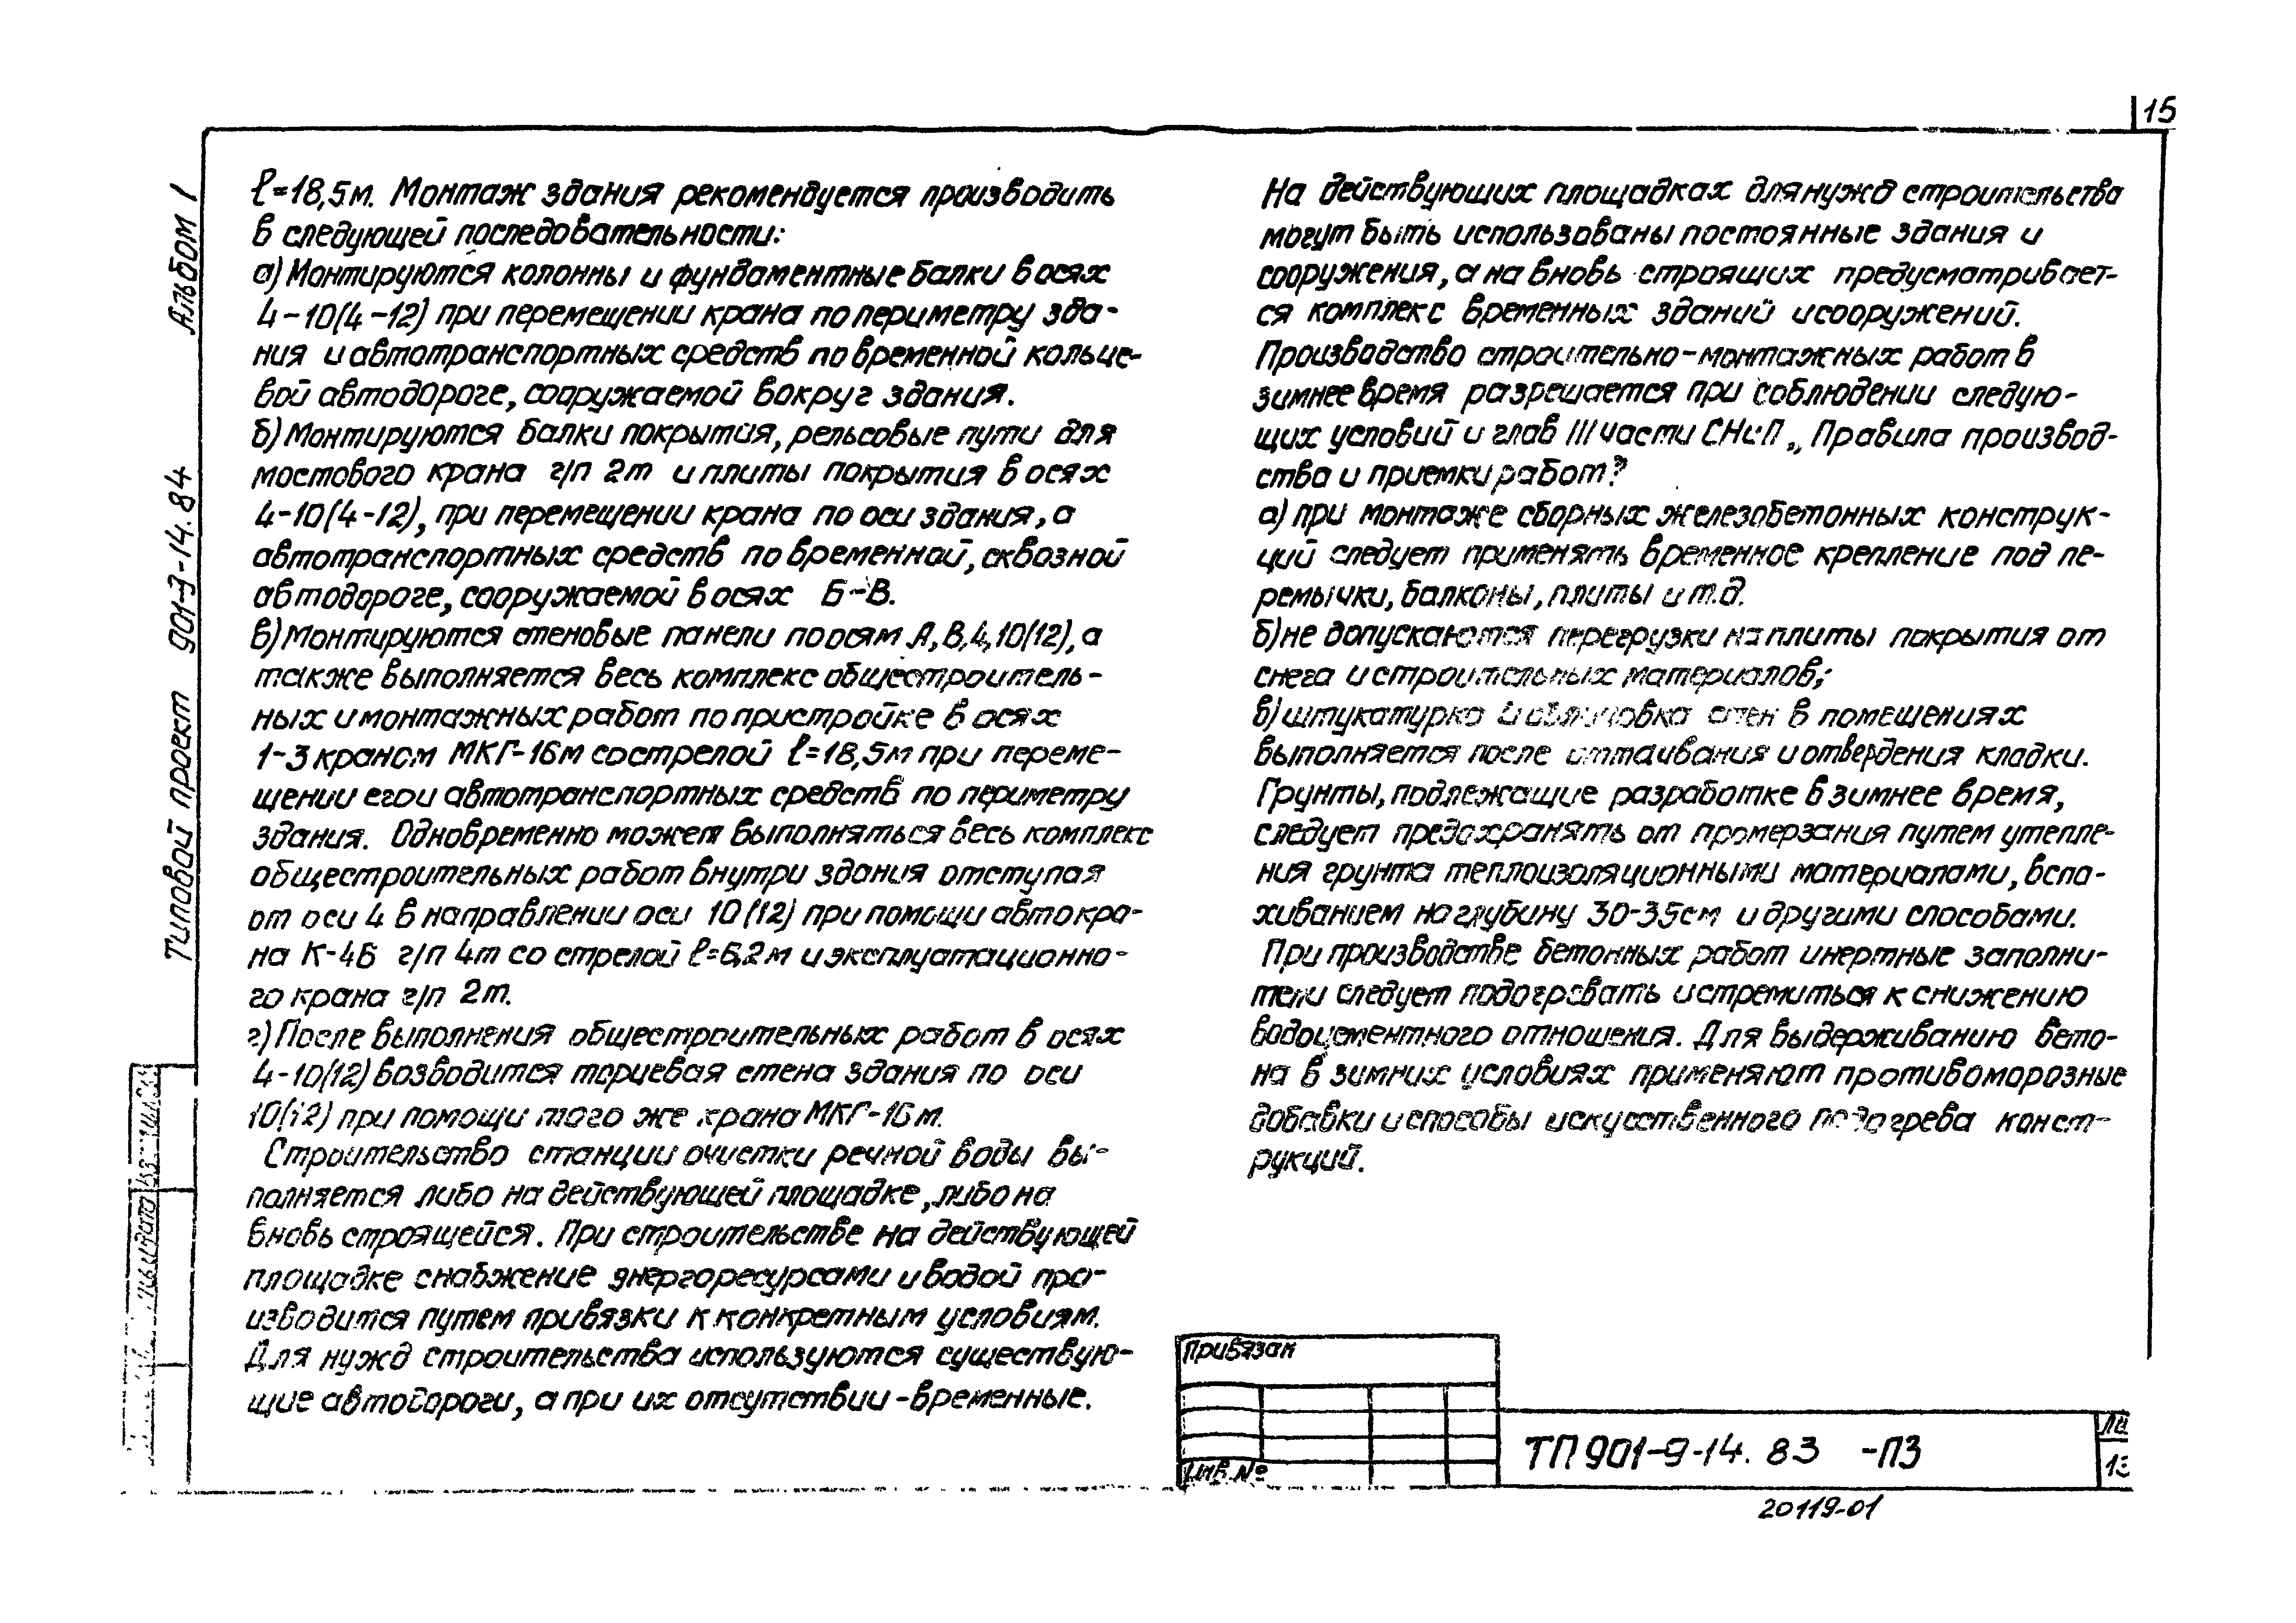 15
Альбом 1
Типовой проект 901-9-14.84
ℓ=18,5м. Монтаж здания рекомендуется производить
в следующей последовательности:
а) Монтируются колонны и фундаментные балки в осях
4-10(4-12) при перемещении крана по периметру зда-
ния и автотранспортных средств по временной кольце-
вой автодороге, сооружаемой вокруг здания.
б) Монтируются балки покрытия, рельсовые пути для
мостового крана г/п 2т и плиты покрытия в осях
4-10(4-12), при перемещении крана по оси здания, а
автотранспортных средств по временной, сквозной
автодороге, сооружаемой в осях Б-В.
в) Монтируются стеновые панели по осям А,В,4,10(12), а
также выполняется весь комплекс общестроитель-
ных и монтажных работ по пристройке в осях
1-3 краном МКГ-16м со стрелой ℓ=18,5м при переме-
щении его и автотранспортных средств по периметру
здания. Одновременно может выполняться весь комплекс
общестроительных работ внутри здания отступая
от оси 4 в направлении оси 10(12) при помощи автокра-
на К-46 г/п 4т со стрелой ℓ=6,2м и эксплуатационно-
го крана г/п 2т.
г) После выполнения общестроительных работ в осях
4-10(12) возводится торцевая стена здания по оси
10(12) при помощи того же крана МКГ-16м.
Строительство станции очистки речной воды вы-
полняется либо на действующей площадке, либо на
вновь строящейся. При строительстве на действующей
площадке снабжение энергоресурсами и водой про-
изводится путем привязки к конкретным условиям.
Для нужд строительства используются существую-
щие автодороги, а при их отсутствии - временные.
На действующих площадках для нужд строительства
могут быть использованы постоянные здания и
сооружения, а на вновь строящих предусматривает-
ся комплекс временных зданий и сооружений.
Производство строительно-монтажных работ в
зимнее время разрешается при соблюдении следую-
щих условий и глав III части СНиП „Правила производ-
ства и приемки работ":
а) при монтаже сборных железобетонных конструк-
ций следует применять временное крепление под пе-
ремычки, балконы, плиты и т.д.
б) не допускаются перегрузки на плиты покрытия от
снега и строительных материалов;
в) штукатурка и облицовка стен в помещениях
выполняется после оттаивания и отвердения кладки.
Грунты, подлежащие разработке в зимнее время,
следует предохранять от промерзания путем утепле-
ния грунта теплоизоляционными материалами, вспа-
хиванием на глубину 30-35см и другими способами.
При производстве бетонных работ инертные заполни-
тели следует подогревать и стремиться к снижению
водоцементного отношения. Для выдерживанию бето-
на в зимних условиях применяют противоморозные
добавки и способы искусственного подогрева конст-
рукций.
Привязан
Инв.№
ТП 901-9-14.83 -ПЗ
13
20119-01